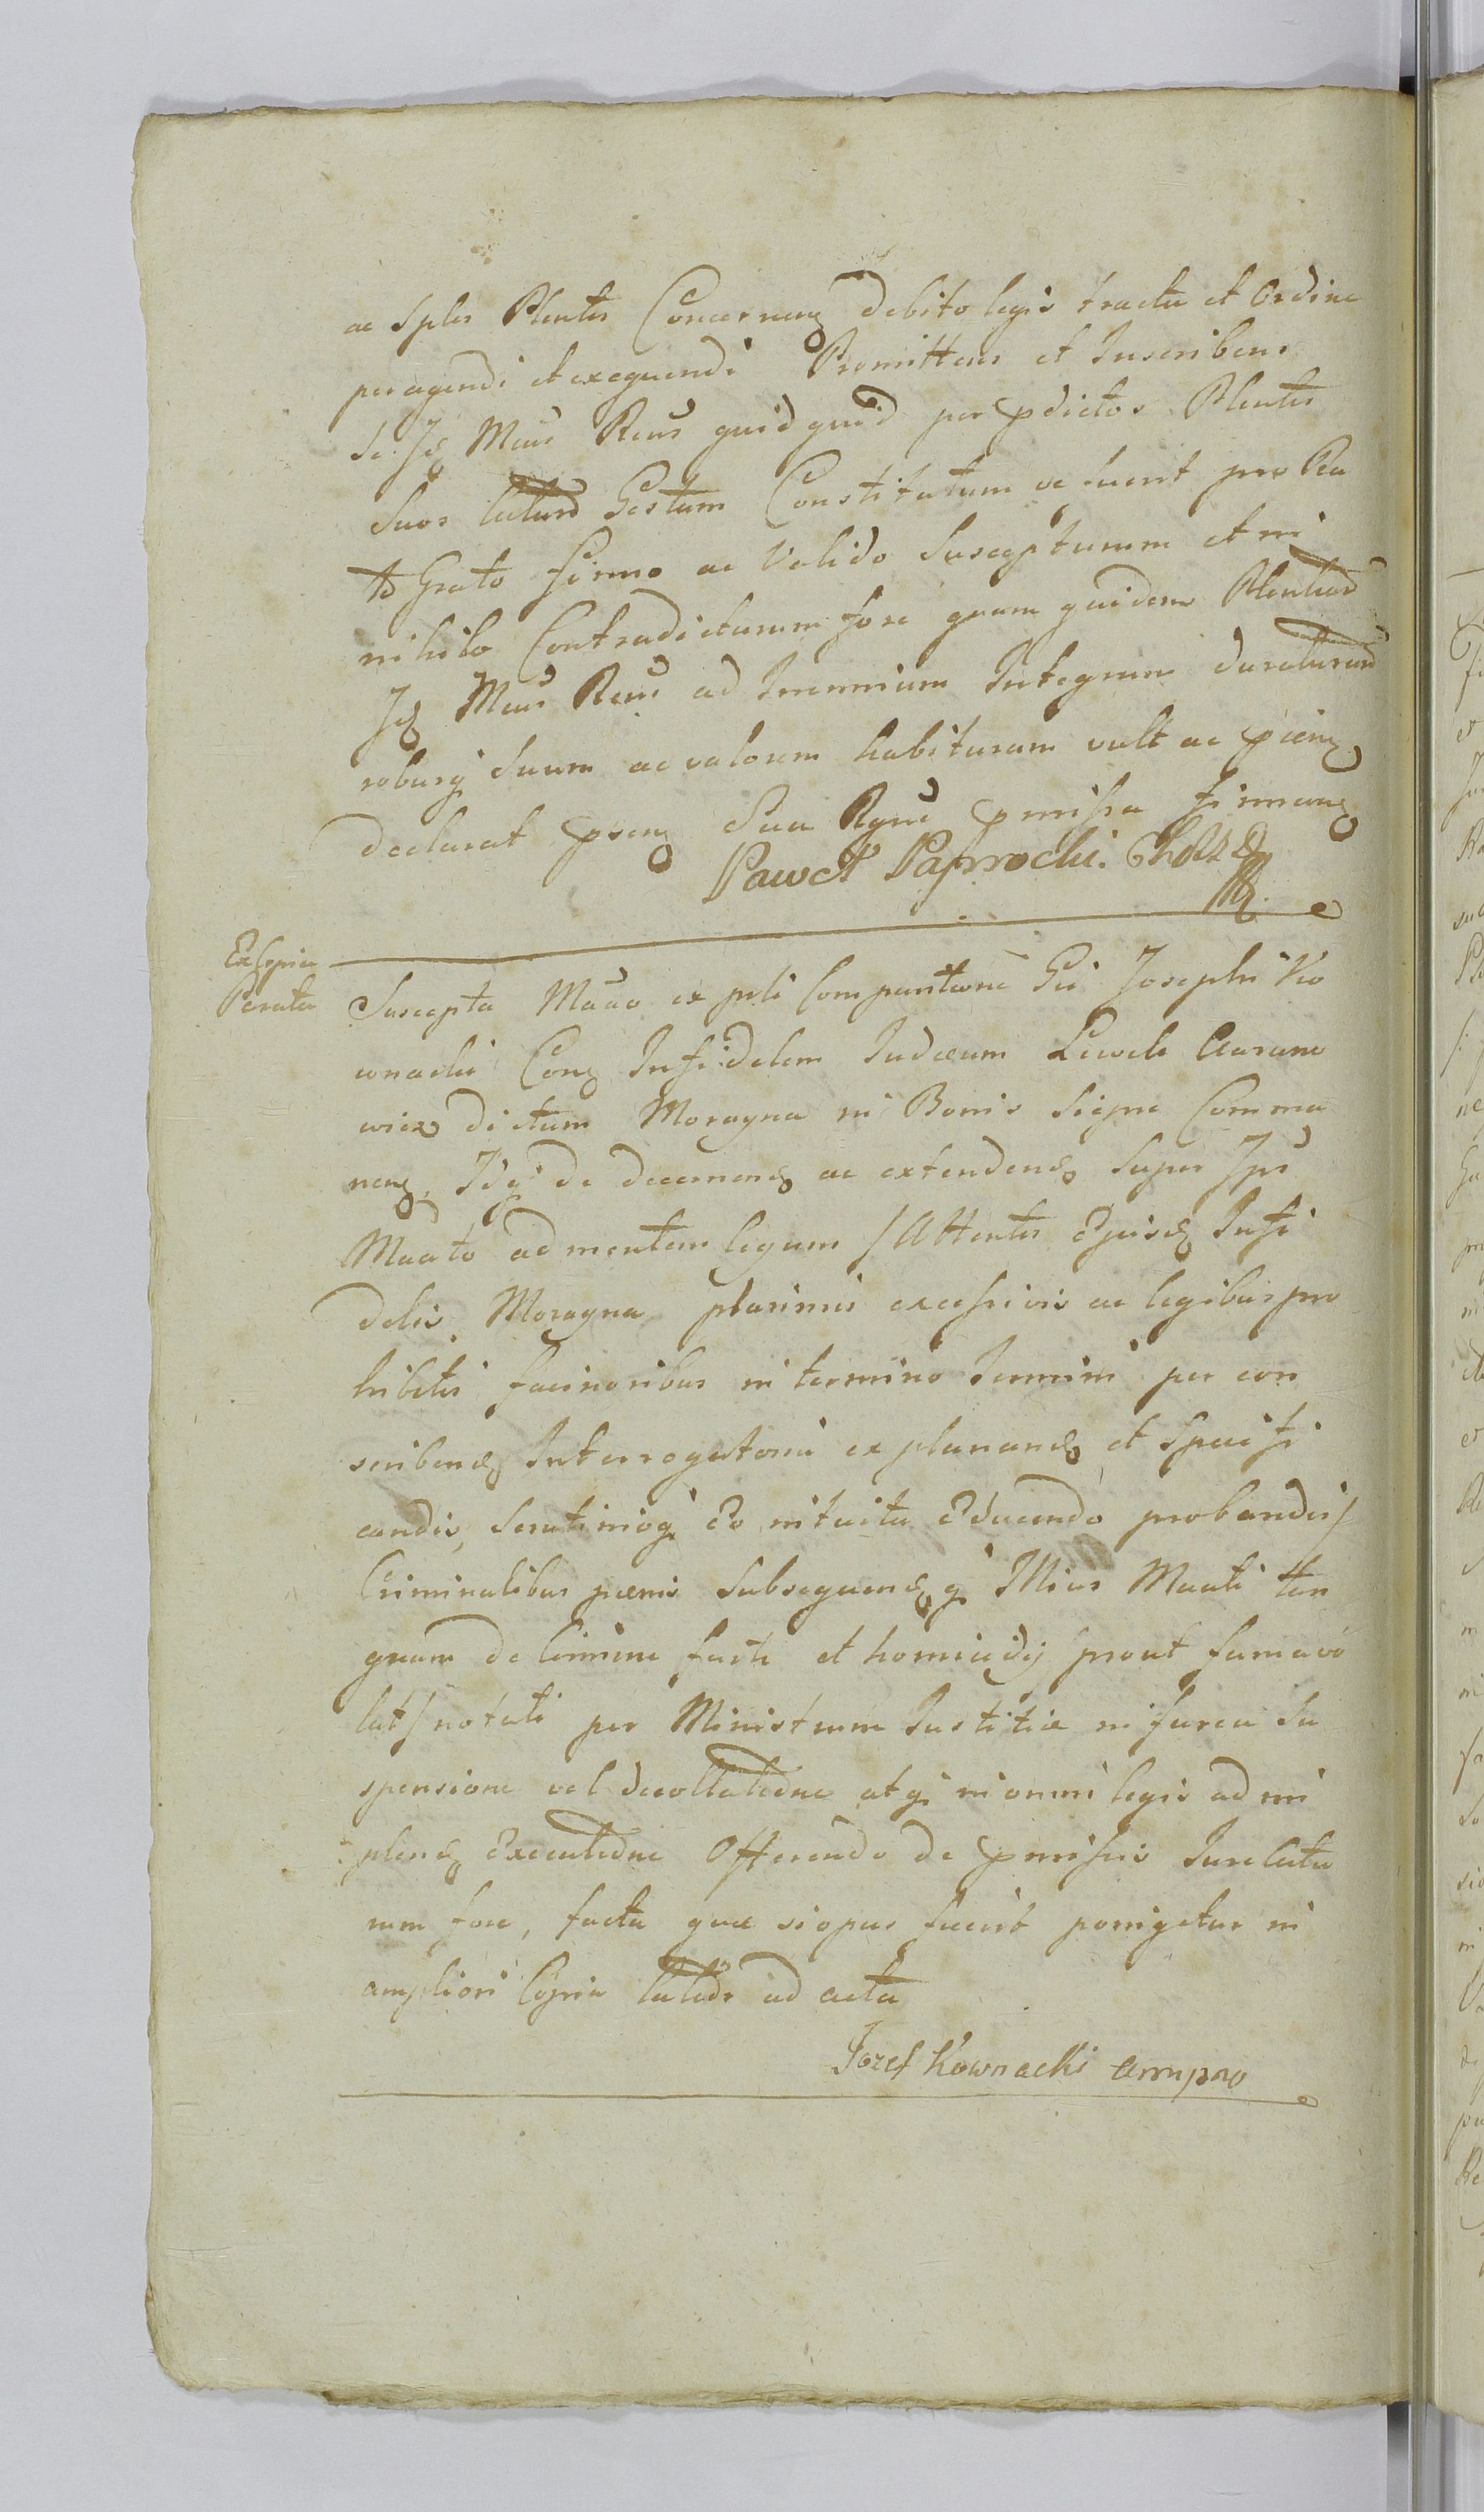 ac Splis Plentis Concernen debito legis tractu et Ordine
peragendi et exequendi Promittens et Inscribens
Se Is Mcus Rcus quid quid per pdictos Plentes
Suos Gestum Constitutum ve fuerit pro Ra
to Grato firmo ac Valido Suscepturum et in
nihilo Contradicturum fore quam quidem
Is Mcus Rcus ad Integrum duraturam
roburq Suum ac valorem habituram vult ac
declarat psen Sua premissa firman
Paweł Paprocki
Ex Copia
Parata
Suscepta ex pli Comparitione Gi Josephi Ko
wnacki Con Infidelem Judæum Lewek
wicz dictum Moragna in Bonis Comma
nen Idq de decernend ac extendend Super Ipo
ad mentem legum / Attentis Ejusd Infi
delis Moragna plurimis excessivis ac legibus pro
hibitis facinoribus in termino Termini per con
scribend Interrogatoria explanand et Specifi
candis, Scrutinioq Eo intuitu Educendo probandis /
Criminalibus pænis Subsequend q Illius tan
quam de Crimine furti et homicidij / prout fama vo
lat / notati per Ministrum Justitiæ in furca Su
spensione vel decollatione atq in omni legis adim
plend Executione Offerendo de pmissis Jure
rum fore, facta quæ si opus fuerit porrigetur in
ampliori Copia ad acta
Jozef Kownacki mmpro